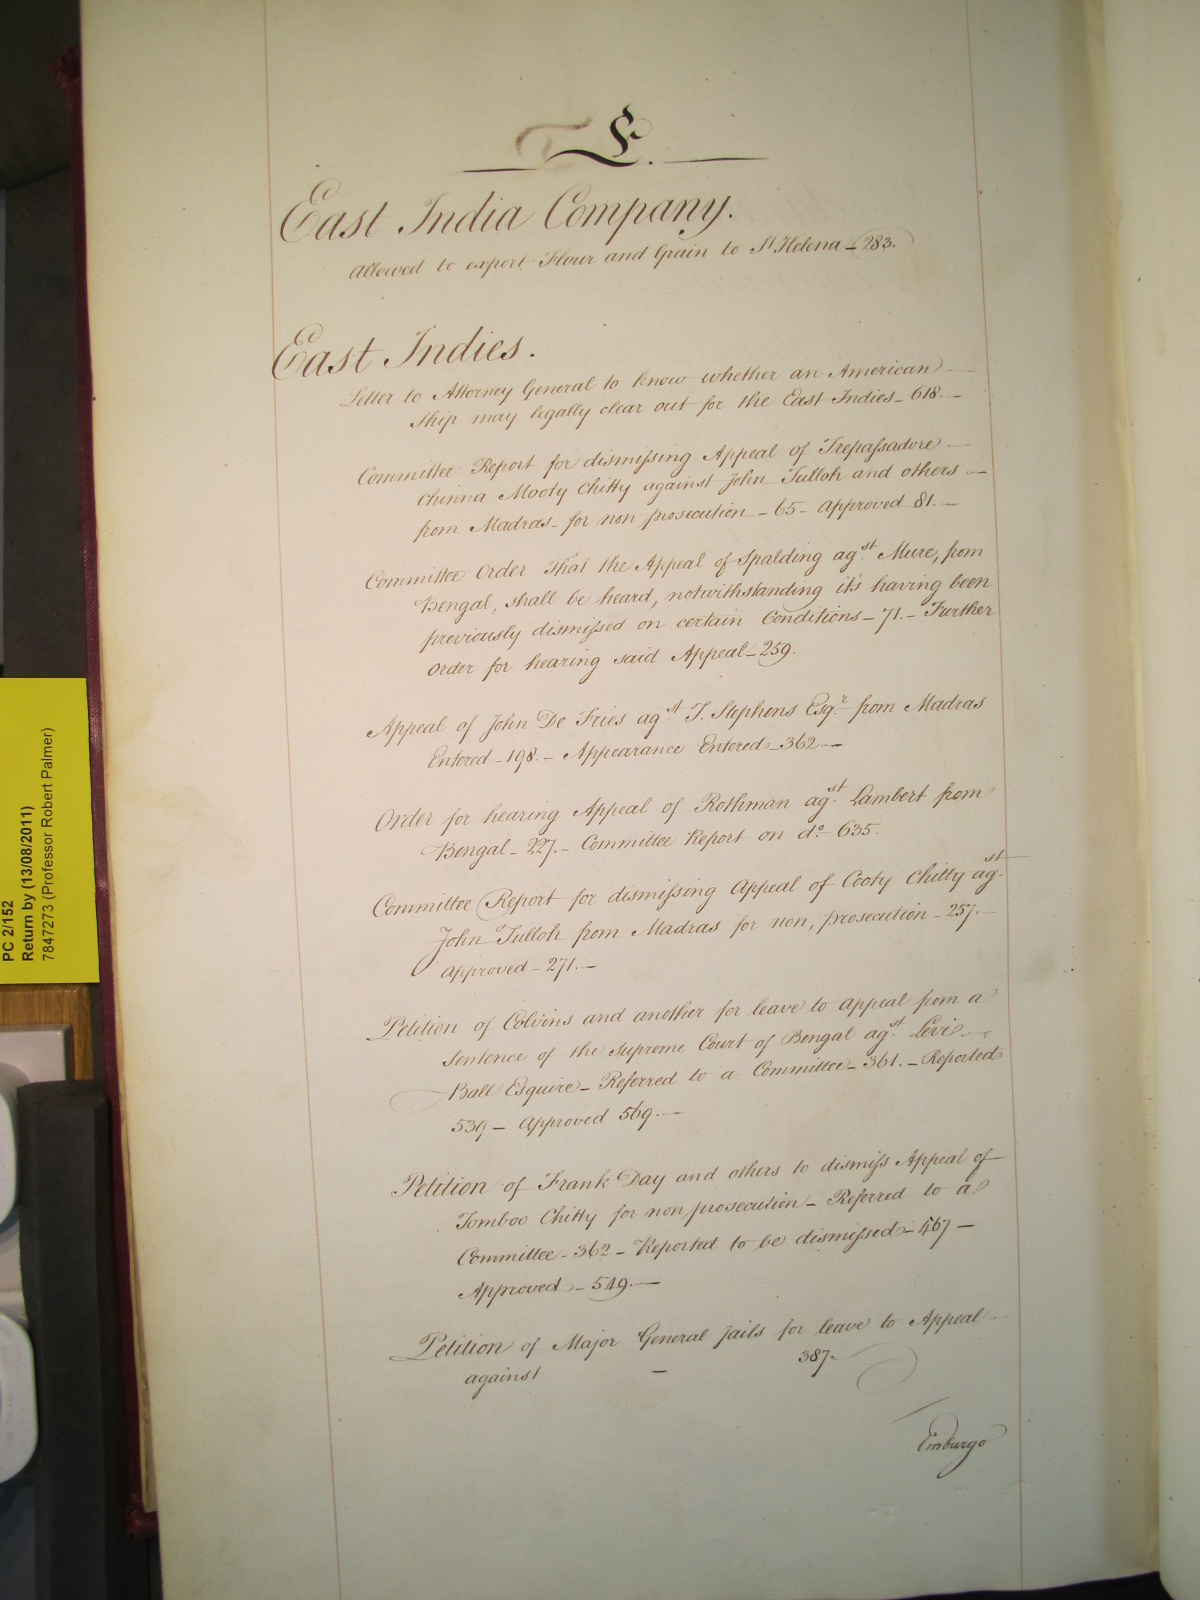 E.
East India Company.
allowed to export Flour and Grain to St Helena - 283.
East Indies.
Letter to Attorney General to know whether an American
Ship may legally clear out for the East Indies - 618. -
Committee Report for dismissing Appeal of Trepassadore
Chinna Mooty Chitty against John Tulloh and others
from Madras - for non prosecution - 65 - approved 81. -
Committee Order That the Appeal of Spalding agst. Mure, from
Bengal, shall be heard, notwithstanding it's having been
previously dismissed on certain Conditions - 71. - Further
order for hearing said Appeal - 259.
Appeal of John De Fries agst. T. Stephens Esqr. from Madras
Entered - 198. - Appearance Entered - 362 -
Order for hearing Appeal of Rothman agst. Lambert from
Bengal - 227. - Committee Report on do. 635.
Committee Report for dismissing Appeal of Cooty Chitty agst.
John Tulloh from Madras for non prosecution - 257. -
approved - 271. -
Petition of Colvins and another for leave to appeal from a
Sentence of the Supreme Court of Bengal agst. Levi
Ball Esquire - Referred to a Committee - 361. - Reported
539 - Approved 569. -
Petition of Frank Day and others to dismiss Appeal of
Tomboo Chitty for non prosecution - Referred to a
Committee - 362 - Reported to be dismissed - 467 -
Approved - 549. -
Petition of Major General Jails for leave to Appeal
against - 387.
Embargo
PC 2/152
Return by (13/08/2011)
7847273 (Professor Robert Palmer)